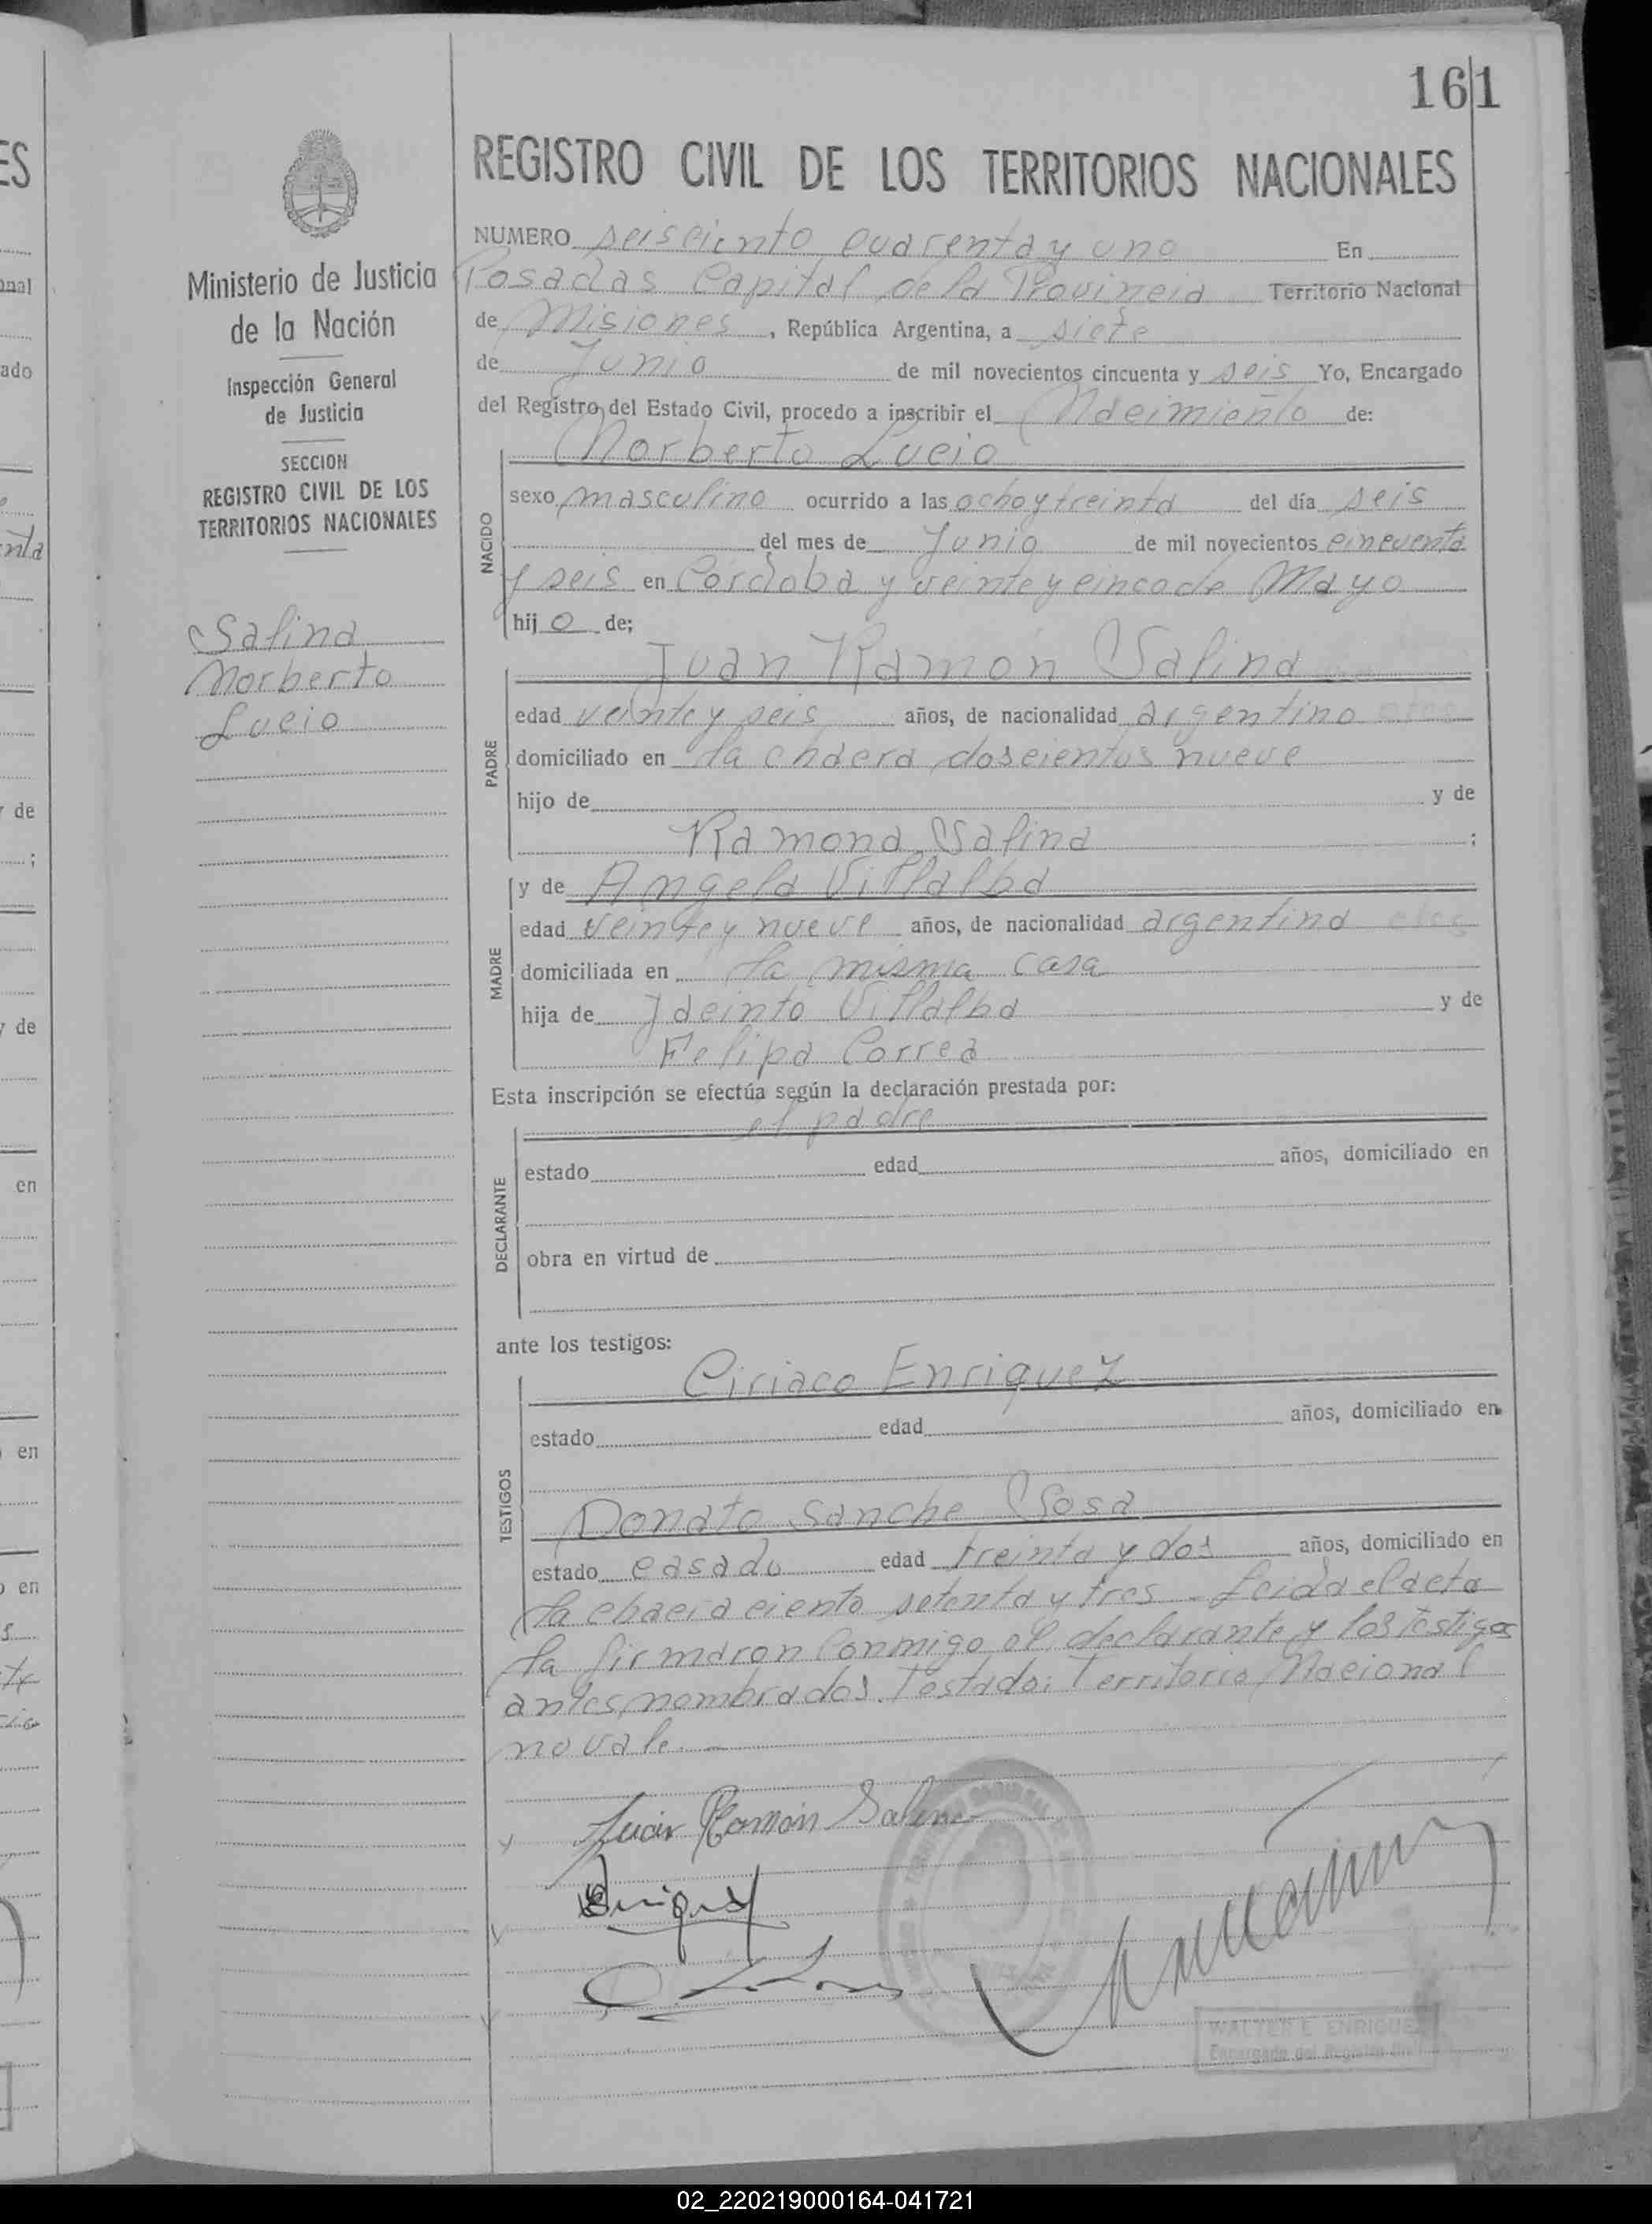 161
REGISTRO CIVIL DE LOS TERRITORIOS NACIONALES
Ministerio de Justicia
de la Nación
Inspección General
de Justicia
SECCION
REGISTRO CIVIL DE LOS
TERRITORIOS NACIONALES
Salina
Norberto
Lucio
NUMERO seisciento cuarenta y uno En
Posadas Capital de la Provincia Territorio Nacional
de Misiones, República Argentina, a siete
de Junio de mil novecientos cincuenta y seis Yo, Encargado
del Registro del Estado Civil, procedo a inscribir el Nacimiento de:
Norberto Lucio
NACIDO
sexo masculino ocurrido a las ocho y treinta del día seis
del mes de Junio de mil novecientos cincuenta
y seis en Córdoba y veinte y cinco de Mayo
hijo de;
Juan Ramón Salina
PADRE
edad veinte y seis años, de nacionalidad argentino
domiciliado en la chacra doscientos nueve
hijo de y de
Ramona Salina ;
y de Angela Villalba
MADRE
edad veinte y nueve años, de nacionalidad argentina
domiciliada en la misma casa
hija de Jacinto Villalba y de
Felipa Correa
Esta inscripción se efectúa según la declaración prestada por:
el padre
DECLARANTE
estado edad años, domiciliado en
obra en virtud de
ante los testigos:
Ciriaco Enriquez
TESTIGOS
estado edad años, domiciliado en
Donato Sanche Sosa
estado casado edad treinta y dos años, domiciliado en
la chacra ciento setenta y tres - Leida el acta
la firmaron conmigo el declarante y los testigos
antes nombrados. Testado: Territorio Nacional
no vale. -
Juan Ramón Salina
WALTER E. ENRIQUEZ
Encargado del Registro Civil
02_220219000164-041721